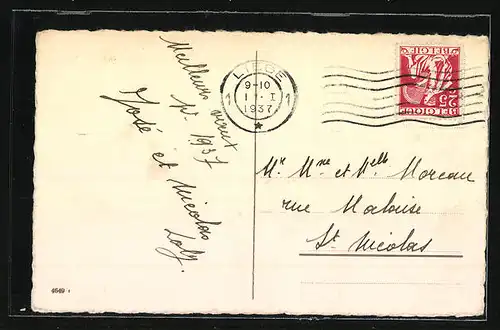 Meilleurs vœux
p. 1937
José et Nicolas
LIEGE
1 9-10 1
1 - I
1937
BELGIE
25
BELGIQUE
Mr Mme et Melle Moreau
rue Malaise
St Nicolas
4649